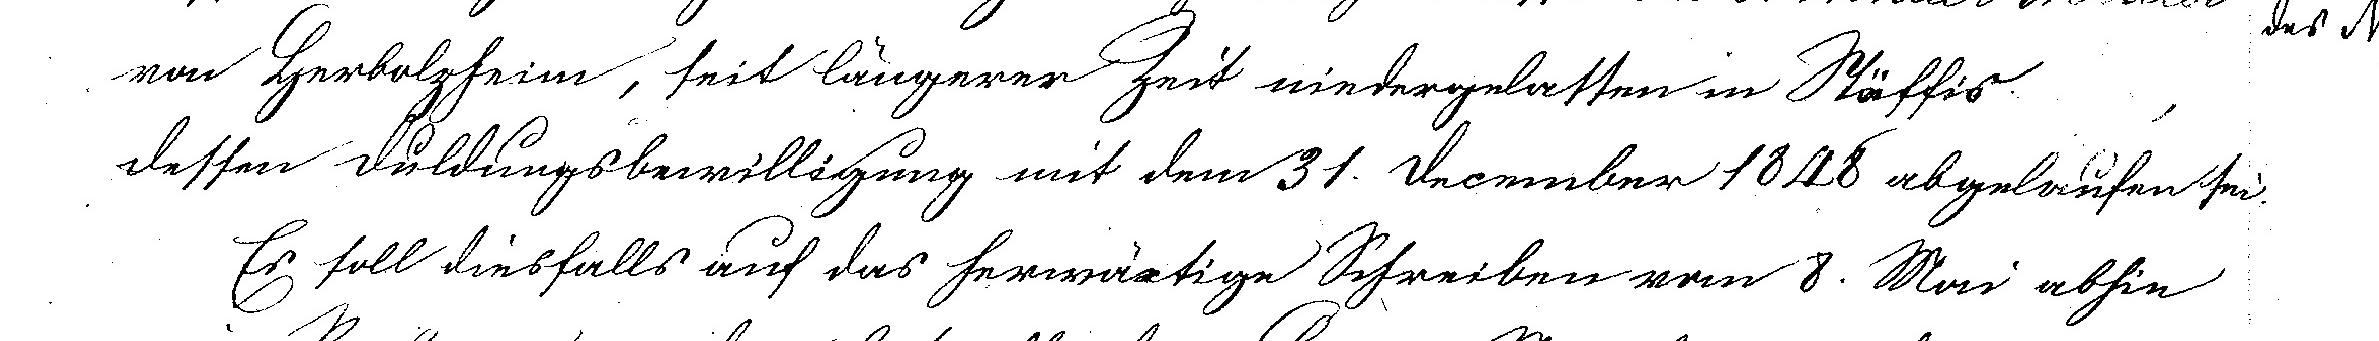 des
von Herbolzheim, seit längerer Zeit niedergelassen in Stäffis,
dessen Duldungsbewilligung mit dem 31. December 1848 abgelaufen sei.
Es soll diesfalls auf das herwärtige Schreiben vom 8. Mai abhin